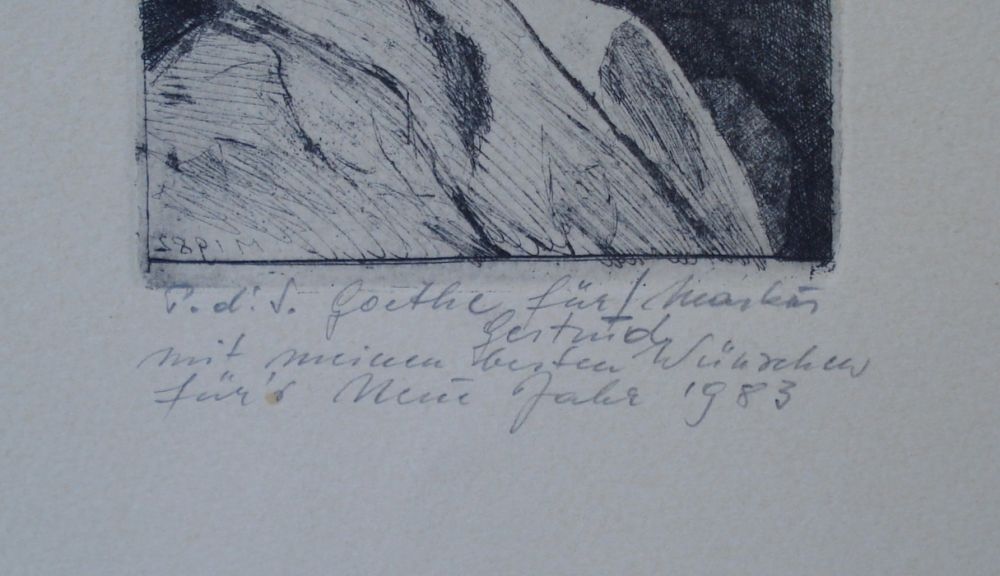 M 1982
P. d'. S. Goethe für / Markus
Gertrud
mit meinen besten Wünschen
für's Neue Jahr 1983